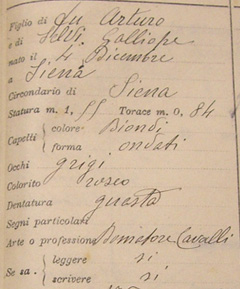 Figlio di fu Arturo
e di Calliope
nato il 4 Dicembre
a Siena
Circondario di Siena
Statura m. 1, 55 Torace m. 0, 84
Capelli { colore Biondi
forma ondati
Occhi grigi
Colorito roseo
Dentatura guasta
Segni particolari
Arte o professione Domatore Cavalli
Se sa { leggere si
scrivere si